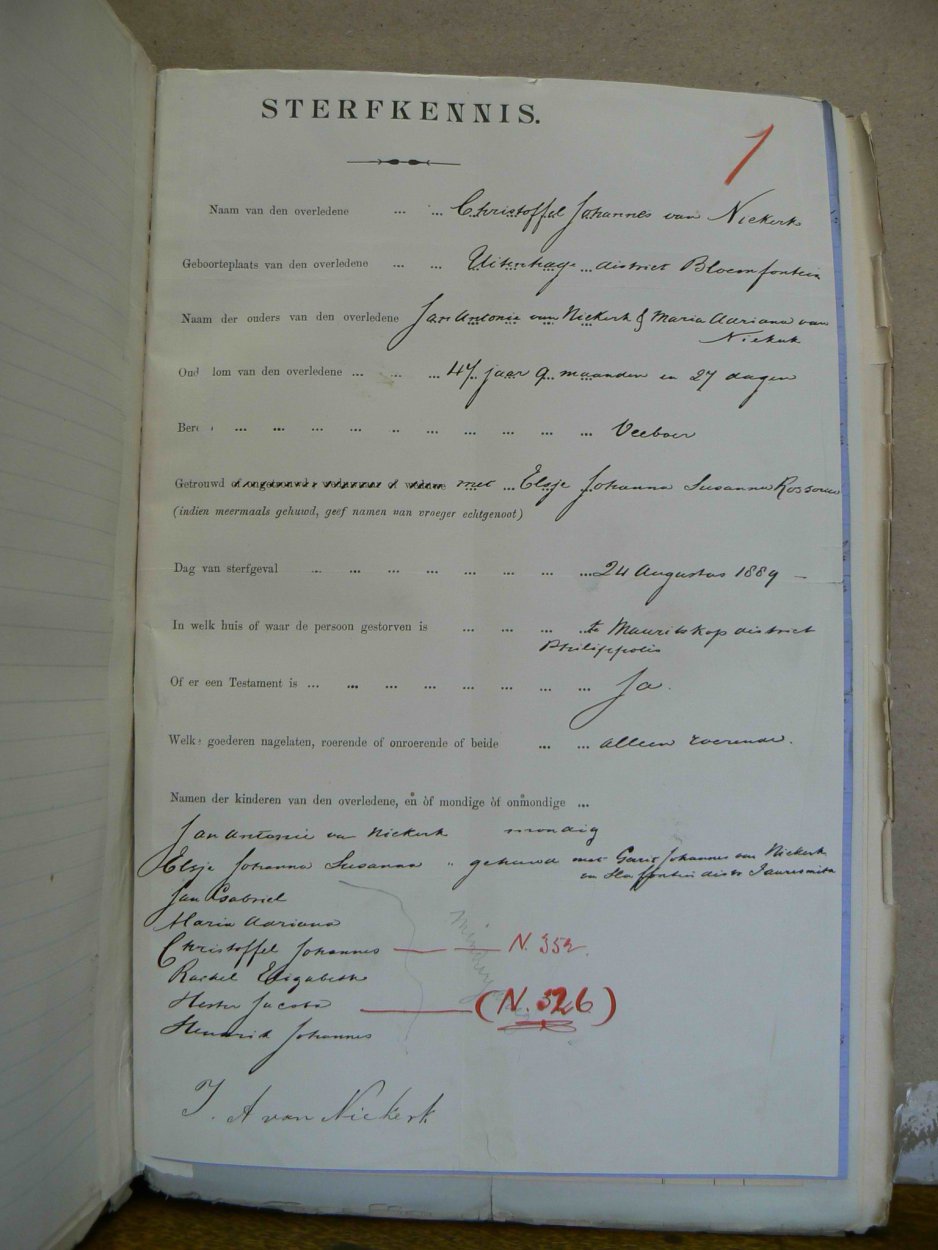 STERFKENNIS.
1
Naam van den overledene ... ... Christoffel Johannes van Niekerk
Geboorteplaats van den overledene ... ... Uitenhage district Bloemfontein
Naam der ouders van den overledene Jan Antonie van Niekerk & Maria Adriana van
Niekerk
Oud lom van den overledene ... ... ... 47 jaar 9 maanden en 27 dagen
Ber ... ... ... ... ... ... ... ... ... ... Veeboer
Getrouwd of ongetrouwd, weduwnaar of weduwe met Elsje Johanna Susanna Rossouw
(indien meermaals gehuwd, geef namen van vroeger echtgenoot)
Dag van sterfgeval ... ... ... ... ... ... ... ... 24 Augustus 1889 –
In welk huis of waar de persoon gestorven is ... ... ... ... te Mauritskop district
Philippolis
Of er een Testament is ... ... ... ... ... ... ... ... Ja.
Welke goederen nagelaten, roerende of onroerende of beide ... ... alleen roerende.
Namen der kinderen van den overledene, en òf mondige òf onmondige ...
Jan Antonie van Niekerk mondig
Elsje Johanna Susanna " gehuwd met Johannes van Niekerk
van distr Fauresmith
Jan Gabriel
Maria Adriana
Christoffel Johannes — — N. 352.
Rachel Elizabeth
Hester Jacoba — (N. 326)
Hendrik Johannes
J. A van Niekerk